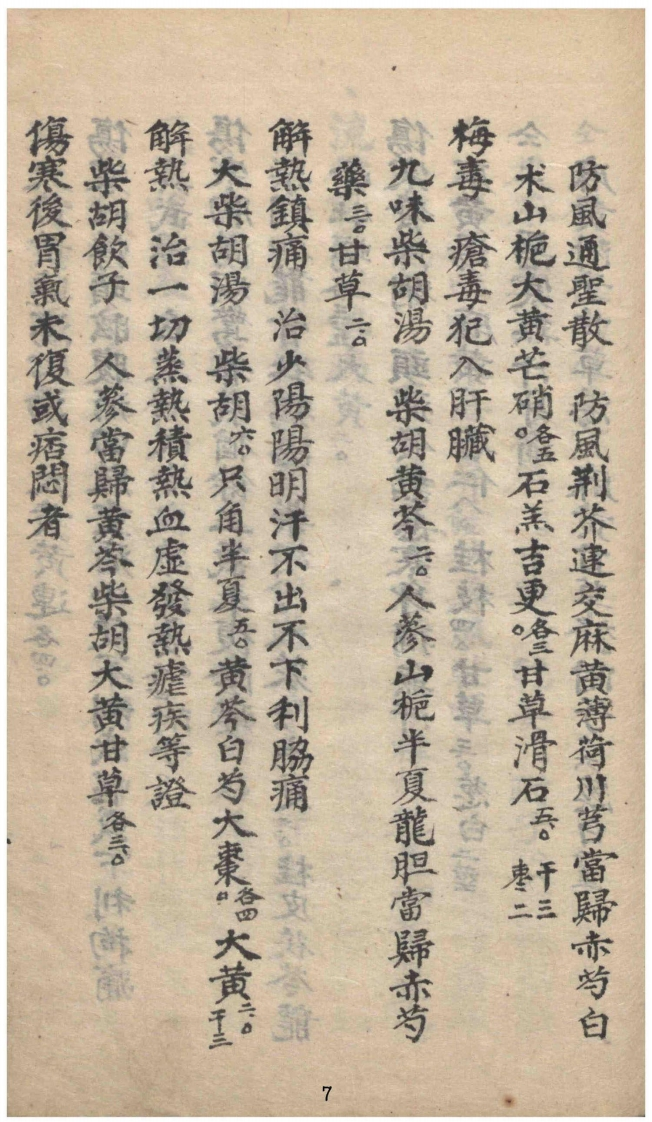 防風通聖散 防風荆芥連交麻黄薄荷川芎當歸赤芍白
朮山梔大黄芒硝各五〇石羔吉更各三〇甘草滑石五〇 干三 枣二
梅毒 瘡毒犯入肝臟
九味柴胡湯 柴胡黄芩二〇人蔘山梔半夏龍胆當歸赤芍
藥三〇甘草二〇
解熱鎮痛 治少陽陽明汗不出不下利脇痛
大柴胡湯 柴胡六〇只角半夏五〇黄芩白芍大棗各四〇大黄二〇干三
解熱 治一切蒸熱積熱血虛發熱瘧疾等證
柴胡飲子 人蔘當歸黄芩柴胡大黄甘草各三〇
傷寒後胃氣未復或痞悶者
7